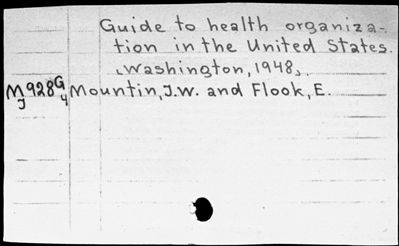 Guide to health organiza-
tion in the United States.
Washington, 1948.
M928G Mountin, J.W. and Flook, E.
J 4